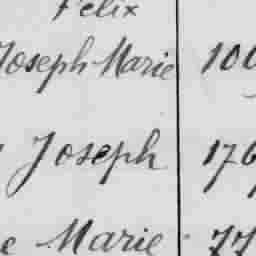 Felix
Joseph Marie 100
Joseph 176
e Marie 77